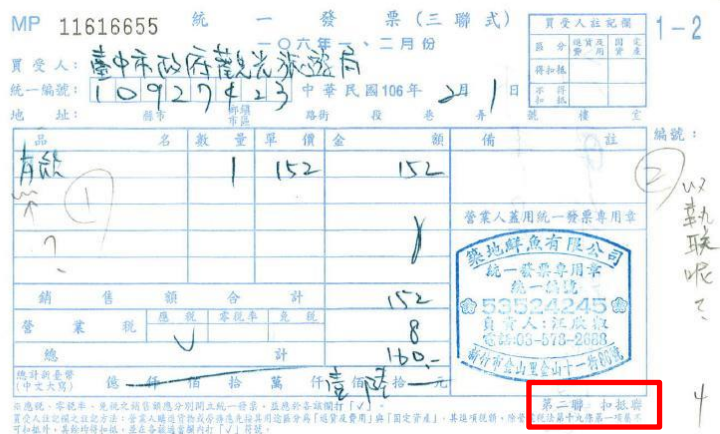 MP 11616655 統一發票(三聯式) 1-2
一〇六年一、二月份
買受人註記欄
區分 進貨及費用 固定資產
得扣抵
不得扣抵
買受人：臺中市政府觀光旅遊局
統一編號：10927423 中華民國106年2月1日
地址： 縣市 鄉鎮市區 路街 段 巷 弄 號 樓 室
品名 數量 單價 金額 備註 編號：
1 152 152
① ②
?
以執联呢?
營業人蓋用統一發票專用章
築地鮮魚有限公司
統一發票專用章
統一編號
53524245
負責人:江
電話:03-578-2688
新竹市金山里金山十一街
銷售額合計 152
營業稅 應稅 零稅率 免稅 8
V
總計 160.-
總計新臺幣(中文大寫) 億 仟 佰 拾 萬 仟 壹佰 陸拾 元
第二聯 扣抵聯
4
※應稅、零稅率、免稅之銷售額應分別開立統一發票，並應於各該欄打「V」。
買受人註記欄之註記方法：營業人購進貨物或勞務應先按其用途區分為「進貨及費用」與「固定資產」，其進項稅額，除營業稅法第十九條第一項屬不可扣抵外，其餘均得扣抵，並在各該適當欄內打「V」符號。